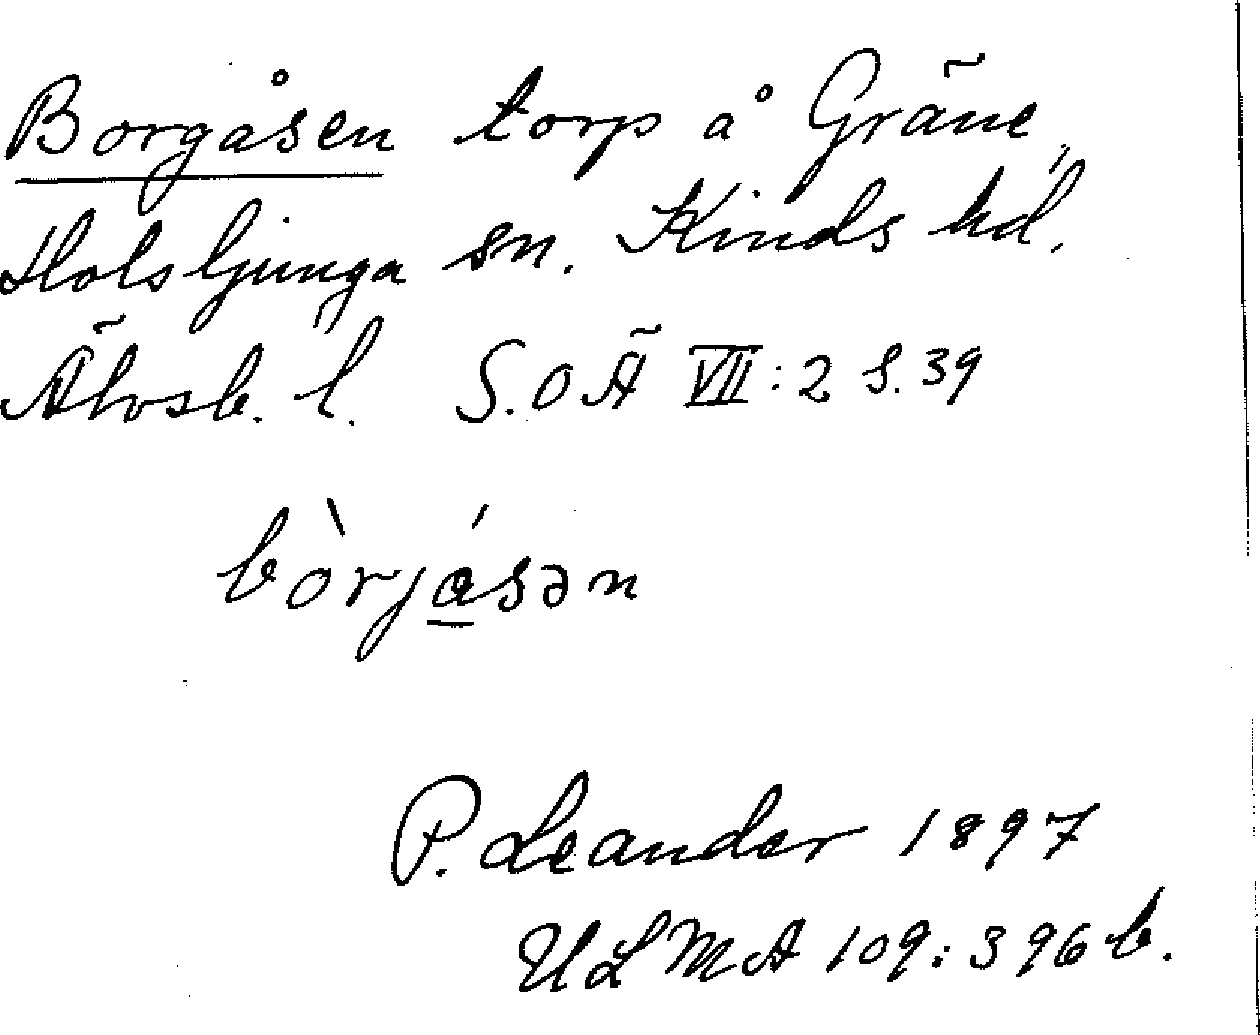 Borgåsen torp å Gräne,
Holsljunga sn. Kinds hd.
Älvsb. l. S.O Ä VII:2 S.39
bòrjásən
P. Leander 1897
ULMA 109:396 b.